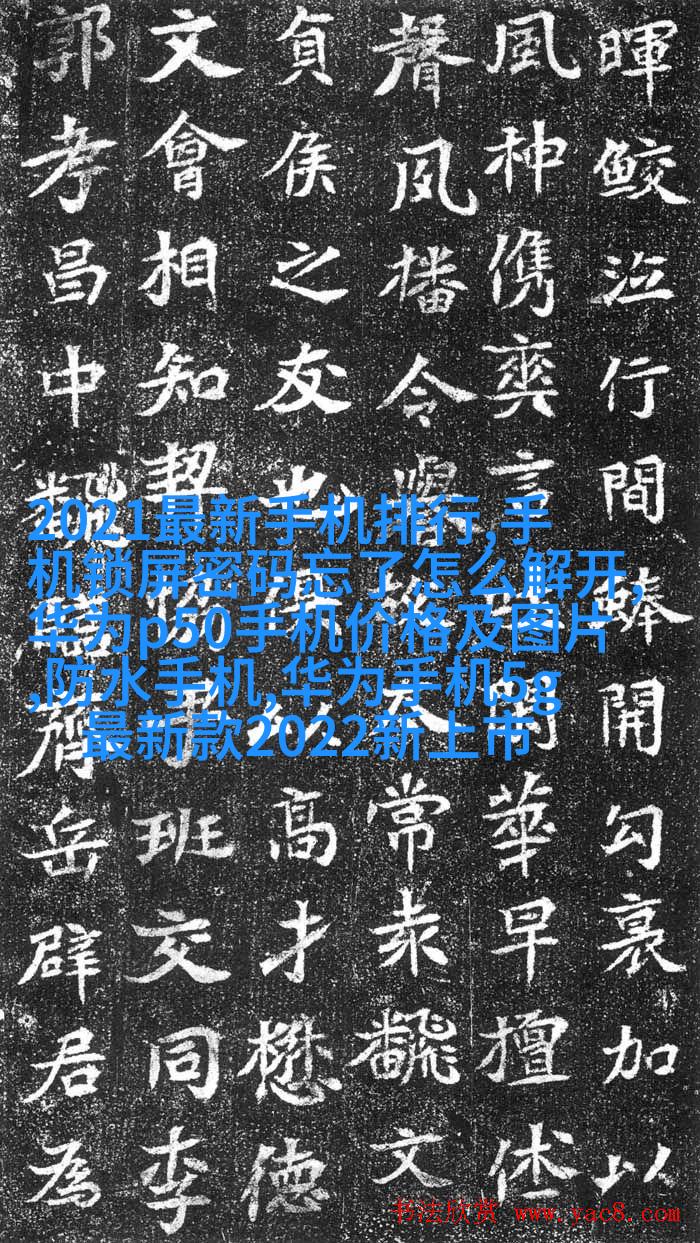 暉鮫泣行間蜯開勾裏加以
風神儁爽言閑華早擅
聲夙播令常文
負侯之友以高才懋德
文會相知契班交同李
郭孝昌中岳辟君為
2021最新手机排行,手
机锁屏密码忘了怎么解开,
华为p50手机价格及图片
,防水手机,华为手机5g
最新款2022新上市
书法欣赏 www.yac8.com